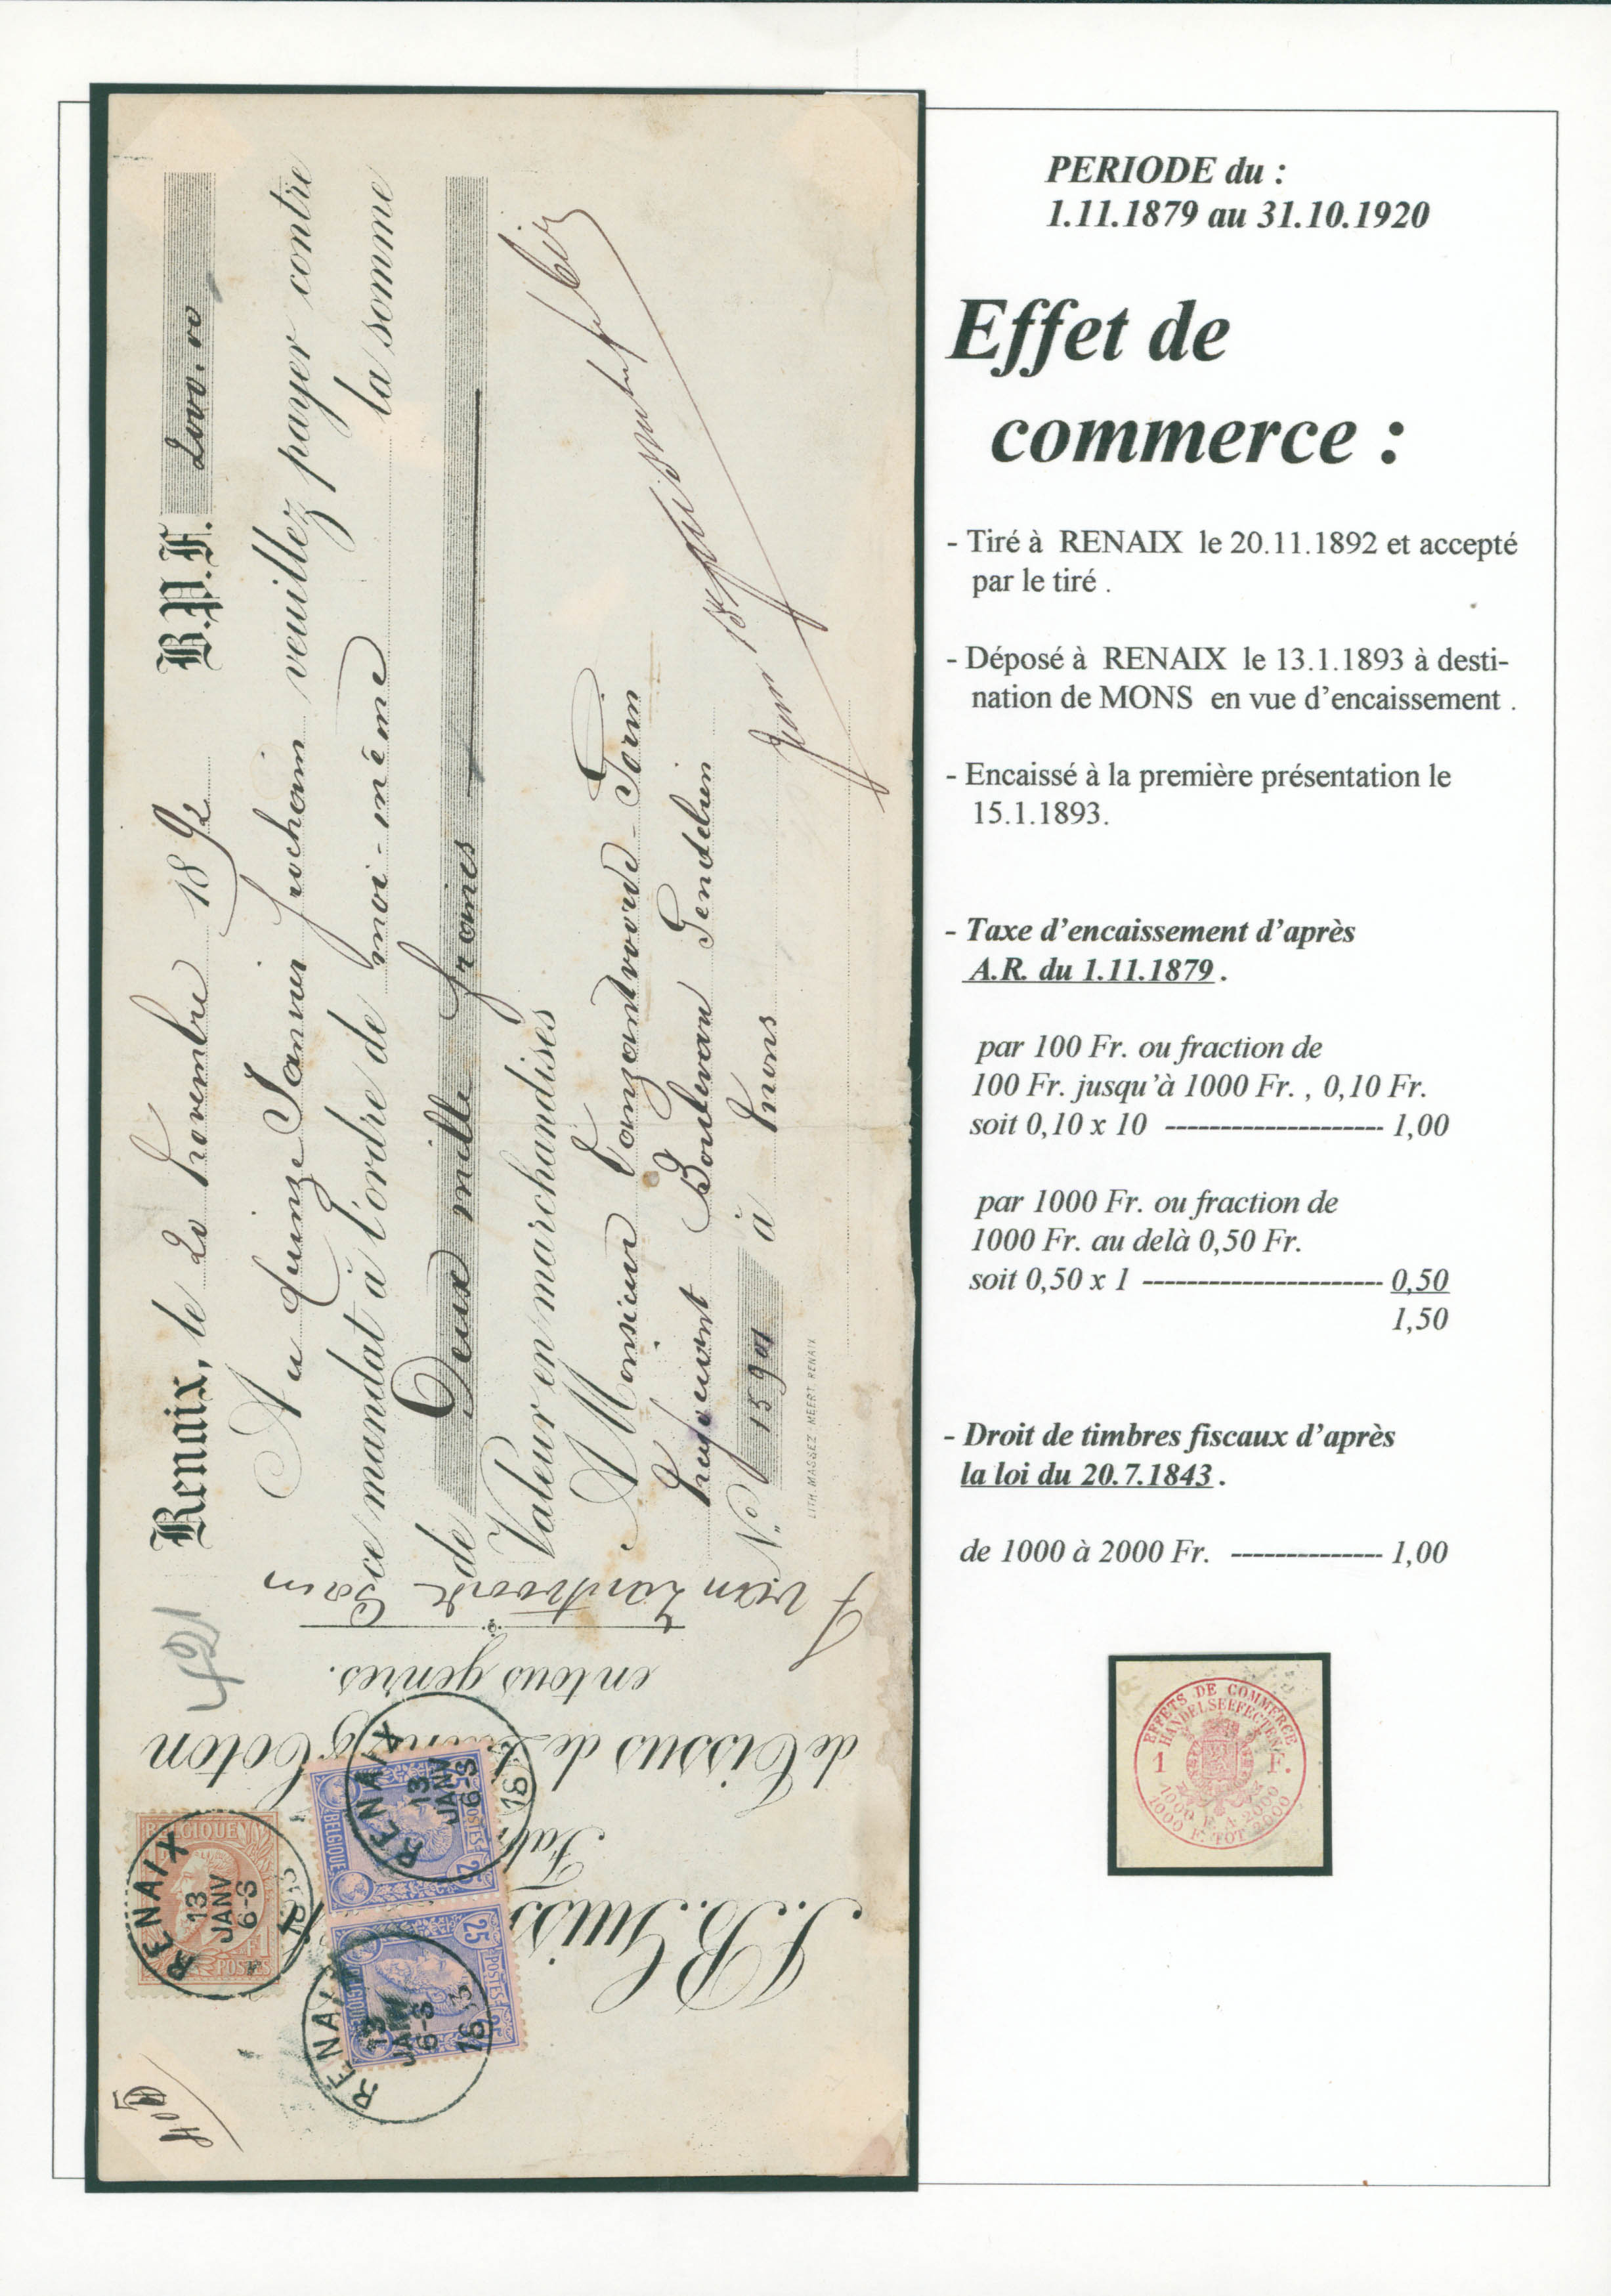 PERIODE du :
1.11.1879 au 31.10.1920
Effet de
commerce :
- Tiré à RENAIX le 20.11.1892 et accepté
par le tiré .
- Déposé à RENAIX le 13.1.1893 à desti-
nation de MONS en vue d'encaissement .
- Encaissé à la première présentation le
15.1.1893.
- Taxe d'encaissement d'après
A.R. du 1.11.1879 .
par 100 Fr. ou fraction de
100 Fr. jusqu'à 1000 Fr. , 0,10 Fr.
soit 0,10 x 10 -------------------- 1,00
par 1000 Fr. ou fraction de
1000 Fr. au delà 0,50 Fr.
soit 0,50 x 1 ---------------------- 0,50
1,50
- Droit de timbres fiscaux d'après
la loi du 20.7.1843 .
de 1000 à 2000 Fr. -------------- 1,00
EFFETS DE COMMERCE
HANDELSEFFECTEN
1 F.
1000 F. A 2000
1000 F. TOT 2000
Renaix, le 20 Novembre 1892 B.P.F. 2000.00
Au Quinze Janvier prochain veuillez payer contre
ce mandat à l'ordre de moi-même la somme
de Deux mille francs
Valeur en marchandises
A Monsieur
Boulevard Gendebien
N° à Mons
LITH. MASSEZ MEERT. RENAIX
J.B.
de Tissus de Coton
en tous genres.
BELGIQUE
POSTES
RENAIX
13
JANV
6-S
BELGIQUE
POSTES
25
25
RENAIX
13
JANV
6-S
BELGIQUE
POSTES
25
25
RENAIX
13
JANV
6-S